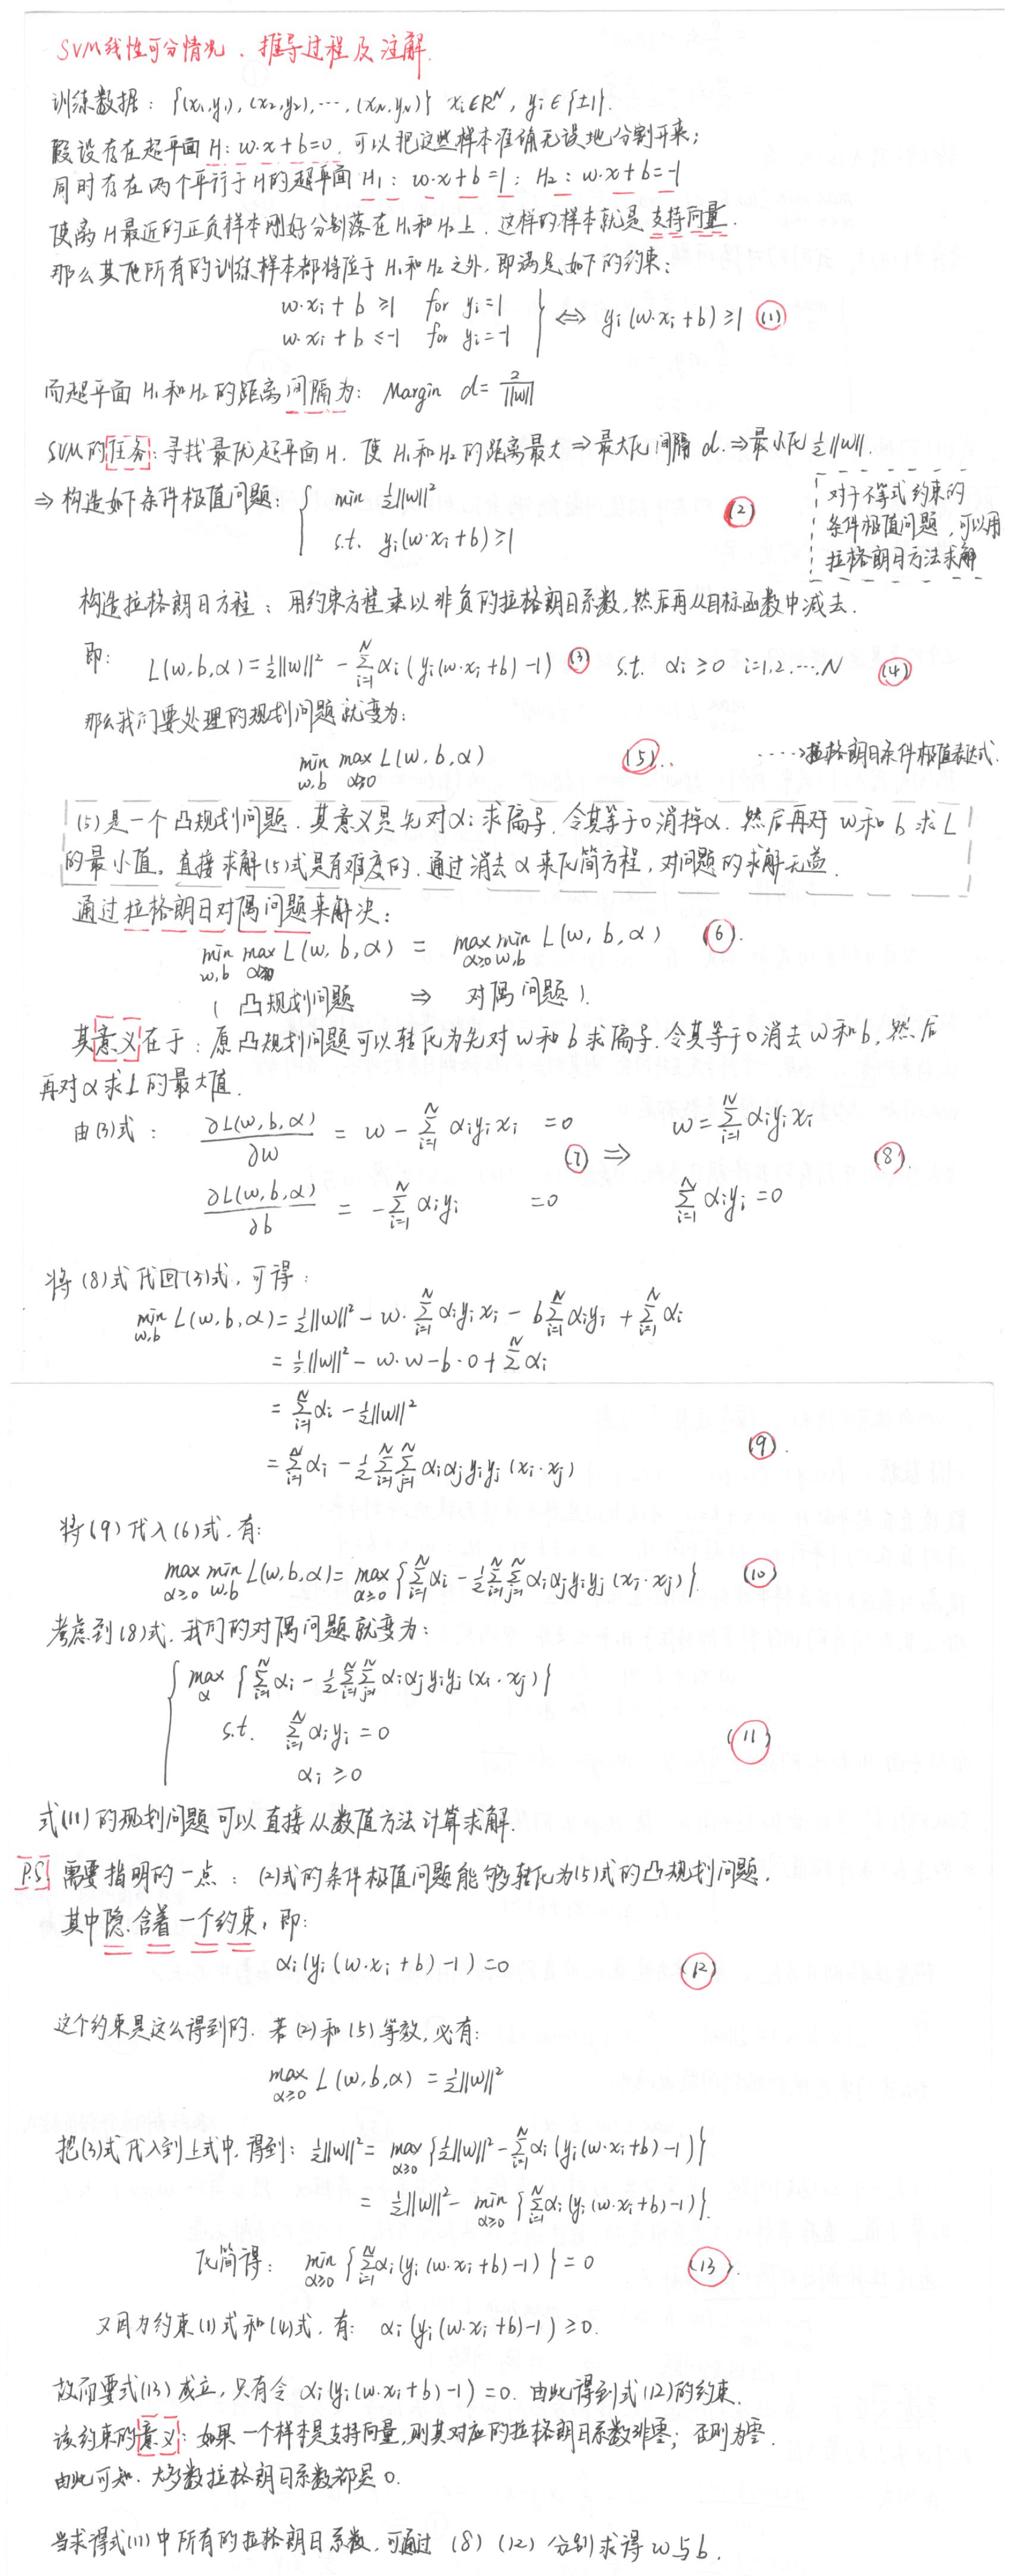 SVM线性可分情况、推导过程及注解.
训练数据: {(x₁,y₁), (x₂,y₂), ⋯, (x_N,y_N)} xᵢ∈R^N, yᵢ∈{±1}.
假设存在超平面 H: w·x+b=0, 可以把这些样本准确无误地分割开来;
同时存在两个平行于H的超平面 H₁: w·x+b=1; H₂: w·x+b=-1
使离H最近的正负样本刚好分别落在H₁和H₂上, 这样的样本就是支持向量.
那么其他所有的训练样本都将位于H₁和H₂之外, 即满足如下的约束:
w·xᵢ+b ≥1 for yᵢ=1
w·xᵢ+b ≤-1 for yᵢ=-1 } ⇔ yᵢ(w·xᵢ+b)≥1 (1)
而超平面H₁和H₂的距离间隔为: Margin d=2/||w||
SVM的任务: 寻找最优超平面H, 使H₁和H₂的距离最大⇒最大化间隔d.⇒最小化½||w||.
⇒ 构造如下条件极值问题: { min ½||w||² (2)
s.t. yᵢ(w·xᵢ+b)≥1
对于不等式约束的
条件极值问题, 可以用
拉格朗日方法求解
构造拉格朗日方程: 用约束方程乘以非负的拉格朗日系数, 然后再从目标函数中减去.
即: L(w,b,α)=½||w||² - ∑_{i=1}^N αᵢ(yᵢ(w·xᵢ+b)-1) (3) s.t. αᵢ≥0 i=1,2,⋯,N (4)
那么我们要处理的规划问题就变为:
min_{w,b} max_{α≥0} L(w,b,α) (5). ⋯⋯→拉格朗日条件极值表达式.
(5)是一个凸规划问题. 其意义是先对αᵢ求偏导, 令其等于0消掉α, 然后再对w和b求L
的最小值。直接求解(5)式是有难度的, 通过消去α来化简方程, 对问题的求解无益.
通过拉格朗日对偶问题来解决:
min_{w,b} max_{α≥0} L(w,b,α) = max_{α≥0} min_{w,b} L(w,b,α) (6).
( 凸规划问题 ⇒ 对偶问题 ).
其意义在于: 原凸规划问题可以转化为先对w和b求偏导, 令其等于0消去w和b, 然后
再对α求L的最大值.
由(3)式: ∂L(w,b,α)/∂w = w - ∑_{i=1}^N αᵢyᵢxᵢ =0 w=∑_{i=1}^N αᵢyᵢxᵢ
(7) ⇒ (8).
∂L(w,b,α)/∂b = -∑_{i=1}^N αᵢyᵢ =0 ∑_{i=1}^N αᵢyᵢ=0
将(8)式代回(3)式, 可得:
min_{w,b} L(w,b,α)=½||w||² - w·∑_{i=1}^N αᵢyᵢxᵢ - b∑_{i=1}^N αᵢyᵢ + ∑_{i=1}^N αᵢ
= ½||w||² - w·w - b·0 + ∑_{i=1}^N αᵢ
= ∑_{i=1}^N αᵢ - ½||w||²
= ∑_{i=1}^N αᵢ - ½∑_{i=1}^N∑_{j=1}^N αᵢαⱼyᵢyⱼ(xᵢ·xⱼ) (9).
将(9)代入(6)式, 有:
max_{α≥0} min_{w,b} L(w,b,α)= max_{α≥0} {∑_{i=1}^N αᵢ - ½∑_{i=1}^N∑_{j=1}^N αᵢαⱼyᵢyⱼ(xᵢ·xⱼ)}. (10)
考虑到(8)式, 我们的对偶问题就变为:
{ max_α {∑_{i=1}^N αᵢ - ½∑_{i=1}^N∑_{j=1}^N αᵢαⱼyᵢyⱼ(xᵢ·xⱼ)}
s.t. ∑_{i=1}^N αᵢyᵢ = 0 (11)
αᵢ ≥ 0
式(11)的规划问题可以直接从数值方法计算求解.
P.S. 需要指明的一点: (2)式的条件极值问题能够转化为(5)式的凸规划问题,
其中隐含着一个约束, 即:
αᵢ(yᵢ(w·xᵢ+b)-1)=0 (12)
这个约束是这么得到的. 若(2)和(5)等效, 必有:
max_{α≥0} L(w,b,α) = ½||w||²
把(3)式代入到上式中, 得到: ½||w||² = max_{α≥0} {½||w||² - ∑_{i=1}^N αᵢ(yᵢ(w·xᵢ+b)-1)}
= ½||w||² - min_{α≥0} {∑_{i=1}^N αᵢ(yᵢ(w·xᵢ+b)-1)}.
化简得: min_{α≥0} {∑_{i=1}^N αᵢ(yᵢ(w·xᵢ+b)-1)} = 0 (13).
又因为约束(1)式和(4)式, 有: αᵢ(yᵢ(w·xᵢ+b)-1)≥0.
故而要式(13)成立, 只有令 αᵢ(yᵢ(w·xᵢ+b)-1)=0. 由此得到式(12)的约束.
该约束的意义: 如果一个样本是支持向量, 则其对应的拉格朗日系数非零; 否则为零.
由此可知, 大多数拉格朗日系数都是0.
当求得式(11)中所有的拉格朗日系数, 可通过 (8) (12) 分别求得w与b.